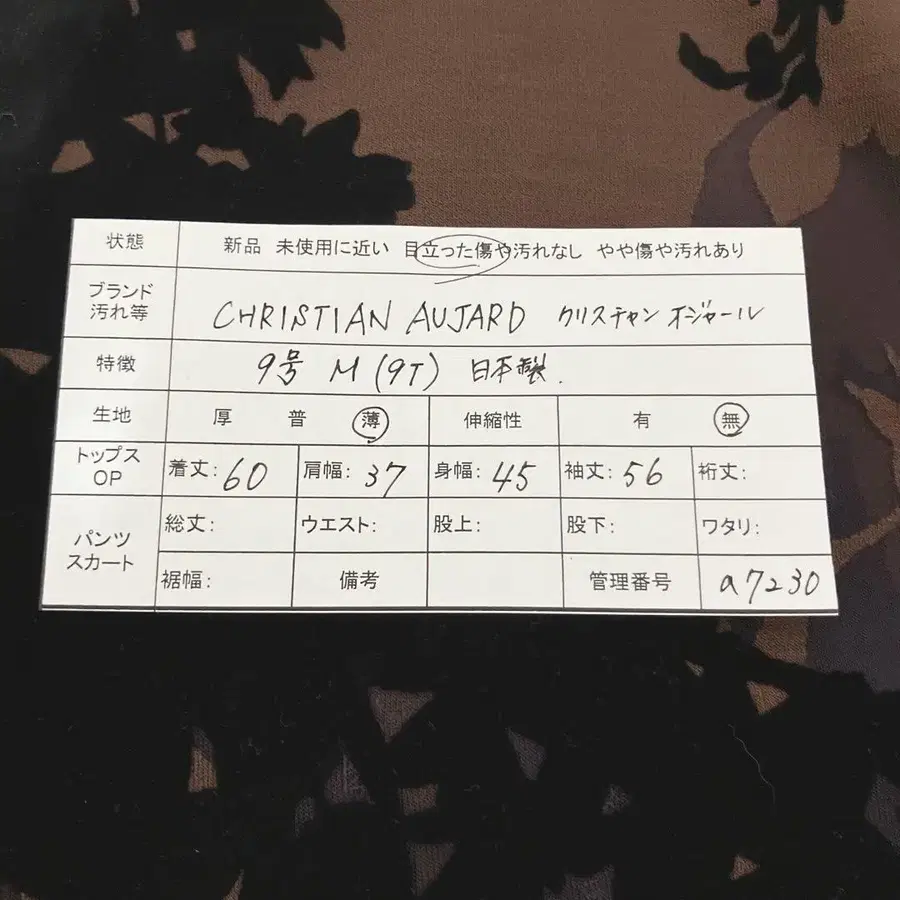 状態 新品 未使用に近い 目立った傷や汚れなし やや傷や汚れあり
ブランド
汚れ等 CHRISTIAN AUJARD クリスチャン オジャール
特徴 9号 M (9T) 日本製.
生地 厚 普 薄 伸縮性 有 無
トップス
OP 着丈: 60 肩幅: 37 身幅: 45 袖丈: 56 裄丈:
パンツ
スカート 総丈: ウエスト: 股上: 股下: ワタリ:
裾幅: 備考 管理番号 a7230